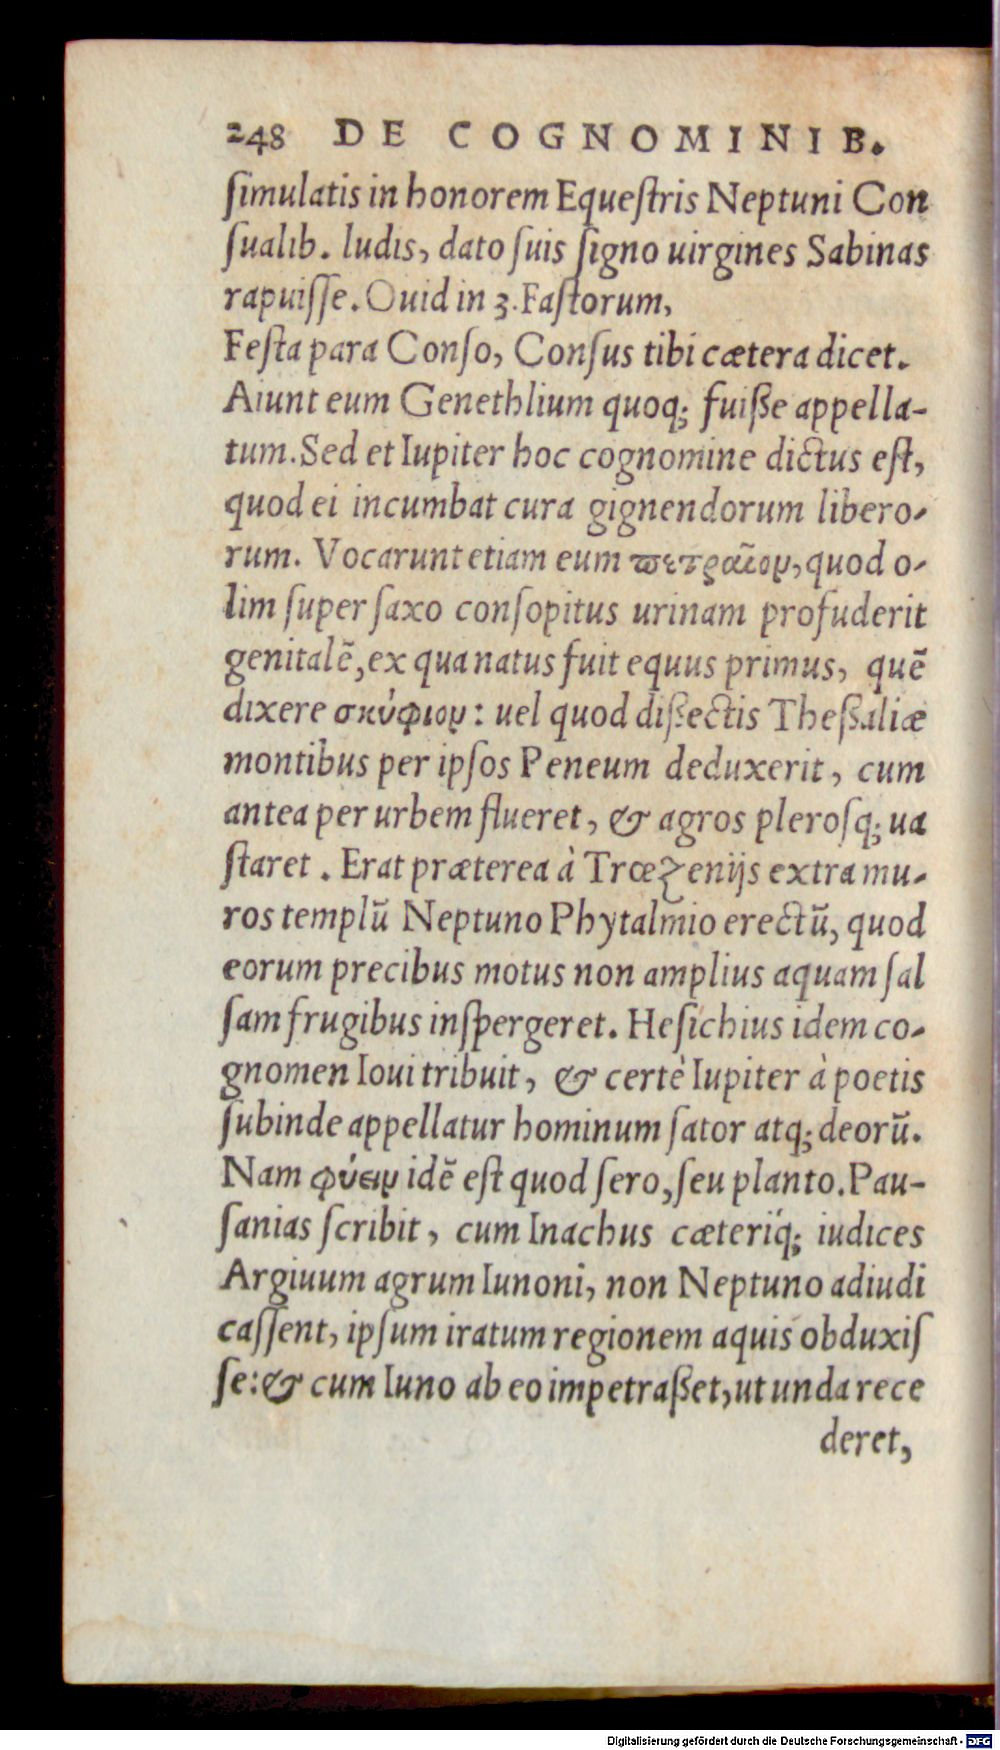 248 DE COGNOMINIB.
ſimulatis in honorem Equeſtris Neptuni Con
ſualib. ludis, dato ſuis ſigno uirgines Sabinas
rapuiſſe. Ouid in 3. Faſtorum,
Feſta para Conſo, Conſus tibi cætera dicet.
Aiunt eum Genethlium quoq; fuiße appella-
tum. Sed et Iupiter hoc cognomine dictus eſt,
quod ei incumbat cura gignendorum libero-
rum. Vocarunt etiam eum ϖετραῖον, quod o-
lim ſuper ſaxo conſopitus urinam profuderit
genitalẽ, ex qua natus fuit equus primus, quẽ
dixere σκύφιον: uel quod dißectis Theßaliæ
montibus per ipſos Peneum deduxerit, cum
antea per urbem flueret, & agros pleroſq; ua
ſtaret. Erat præterea à Trœzenijs extra mu-
ros templũ Neptuno Phytalmio erectũ, quod
eorum precibus motus non amplius aquam ſal
ſam frugibus inſpergeret. Heſichius idem co-
gnomen Ioui tribuit, & certè Iupiter à poetis
ſubinde appellatur hominum ſator atq; deorũ.
Nam φύειν idẽ eſt quod ſero, ſeu planto. Pau-
ſanias ſcribit, cum Inachus cæteriq́; iudices
Argiuum agrum Iunoni, non Neptuno adiudi
caſſent, ipſum iratum regionem aquis obduxiſ
ſe: & cum Iuno ab eo impetraßet, ut unda rece
deret,
Digitalisierung gefördert durch die Deutsche Forschungsgemeinschaft - DFG